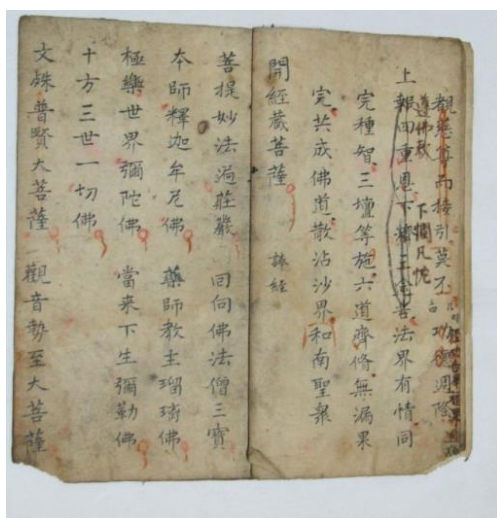 覩慈尊而接引莫不
遵佛敕 下獨凡忱
功德週隆
上報四重恩下濟三途苦法界有情同
完種智三壇等施六道齊脩無漏果
完共成佛道散沾沙界和南聖衆
開經藏菩薩 誦經
菩提妙法遍莊嚴 回向佛法僧三寶
本師釋迦牟尼佛 藥師教主瑠璃佛
極樂世界彌陀佛 當来下生彌勒佛
十方三世一切佛
文殊普賢大菩薩 觀音勢至大菩薩